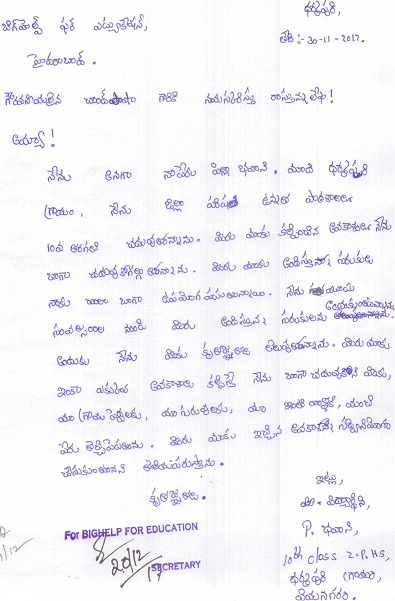 ధర్మపురి,
తేది :- 30-11-2017.
బిగ్‌హెల్ప్ ఫర్ ఎడ్యుకేషన్,
హైదరాబాద్.
గౌరవనీయులైన చాంద్‌పాషా గారికి నమస్కరిస్తూ రాస్తున్న లేఖ!
అయ్యా!
నేను అనగా నా పేరు పిల్లా భవాని. మాది ధర్మపురి
గ్రామం, నేను జిల్లా పరిషత్ ఉన్నత పాఠశాలలో
10వ తరగతి చదువుతున్నాను. మీరు మాకు కల్పించిన అవకాశంతో నేను
బాగా చదువుకోగల్గుతున్నాను. మీరు మాకు అందిస్తున్న సరుకులు
నాకు చాలా బాగా ఉపయోగపడుతున్నాయి. నేను మూడు
సంవత్సరాల నుండి మీరు అందిస్తున్న సరుకులను అందుకుంటున్నాను
అందుకు నేను మీకు కృతజ్ఞతలు తెలుపుతున్నాను. మీరు మాకు
ఇంకా ఎక్కువ అవకాశాలు కల్పిస్తే నేను బాగా చదువుకొని మీకు,
మా గ్రామ పెద్దలకు, మా గురువులకు, మా ఇంటి
పేరు తెచ్చిపెడతాను. మీరు మాకు ఇచ్చిన అవకాశాన్ని సద్వినియోగం
చేసుకుంటానని తెలియపరుస్తున్నాను.
కృతజ్ఞతలు.
ఇట్లు,
మీ విద్యార్థిని,
P. భవాని,
10th class Z.P.H.S,
ధర్మపురి గ్రామం,
విజయనగరం.
For BIGHELP FOR EDUCATION
20/12/17
SECRETARY